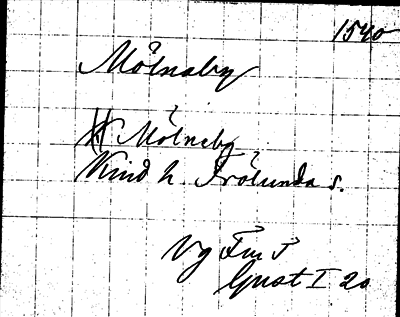 1540
Mölnaby
H Mölneby
Kind h. Frölunda s.
Vg
Gust I 20